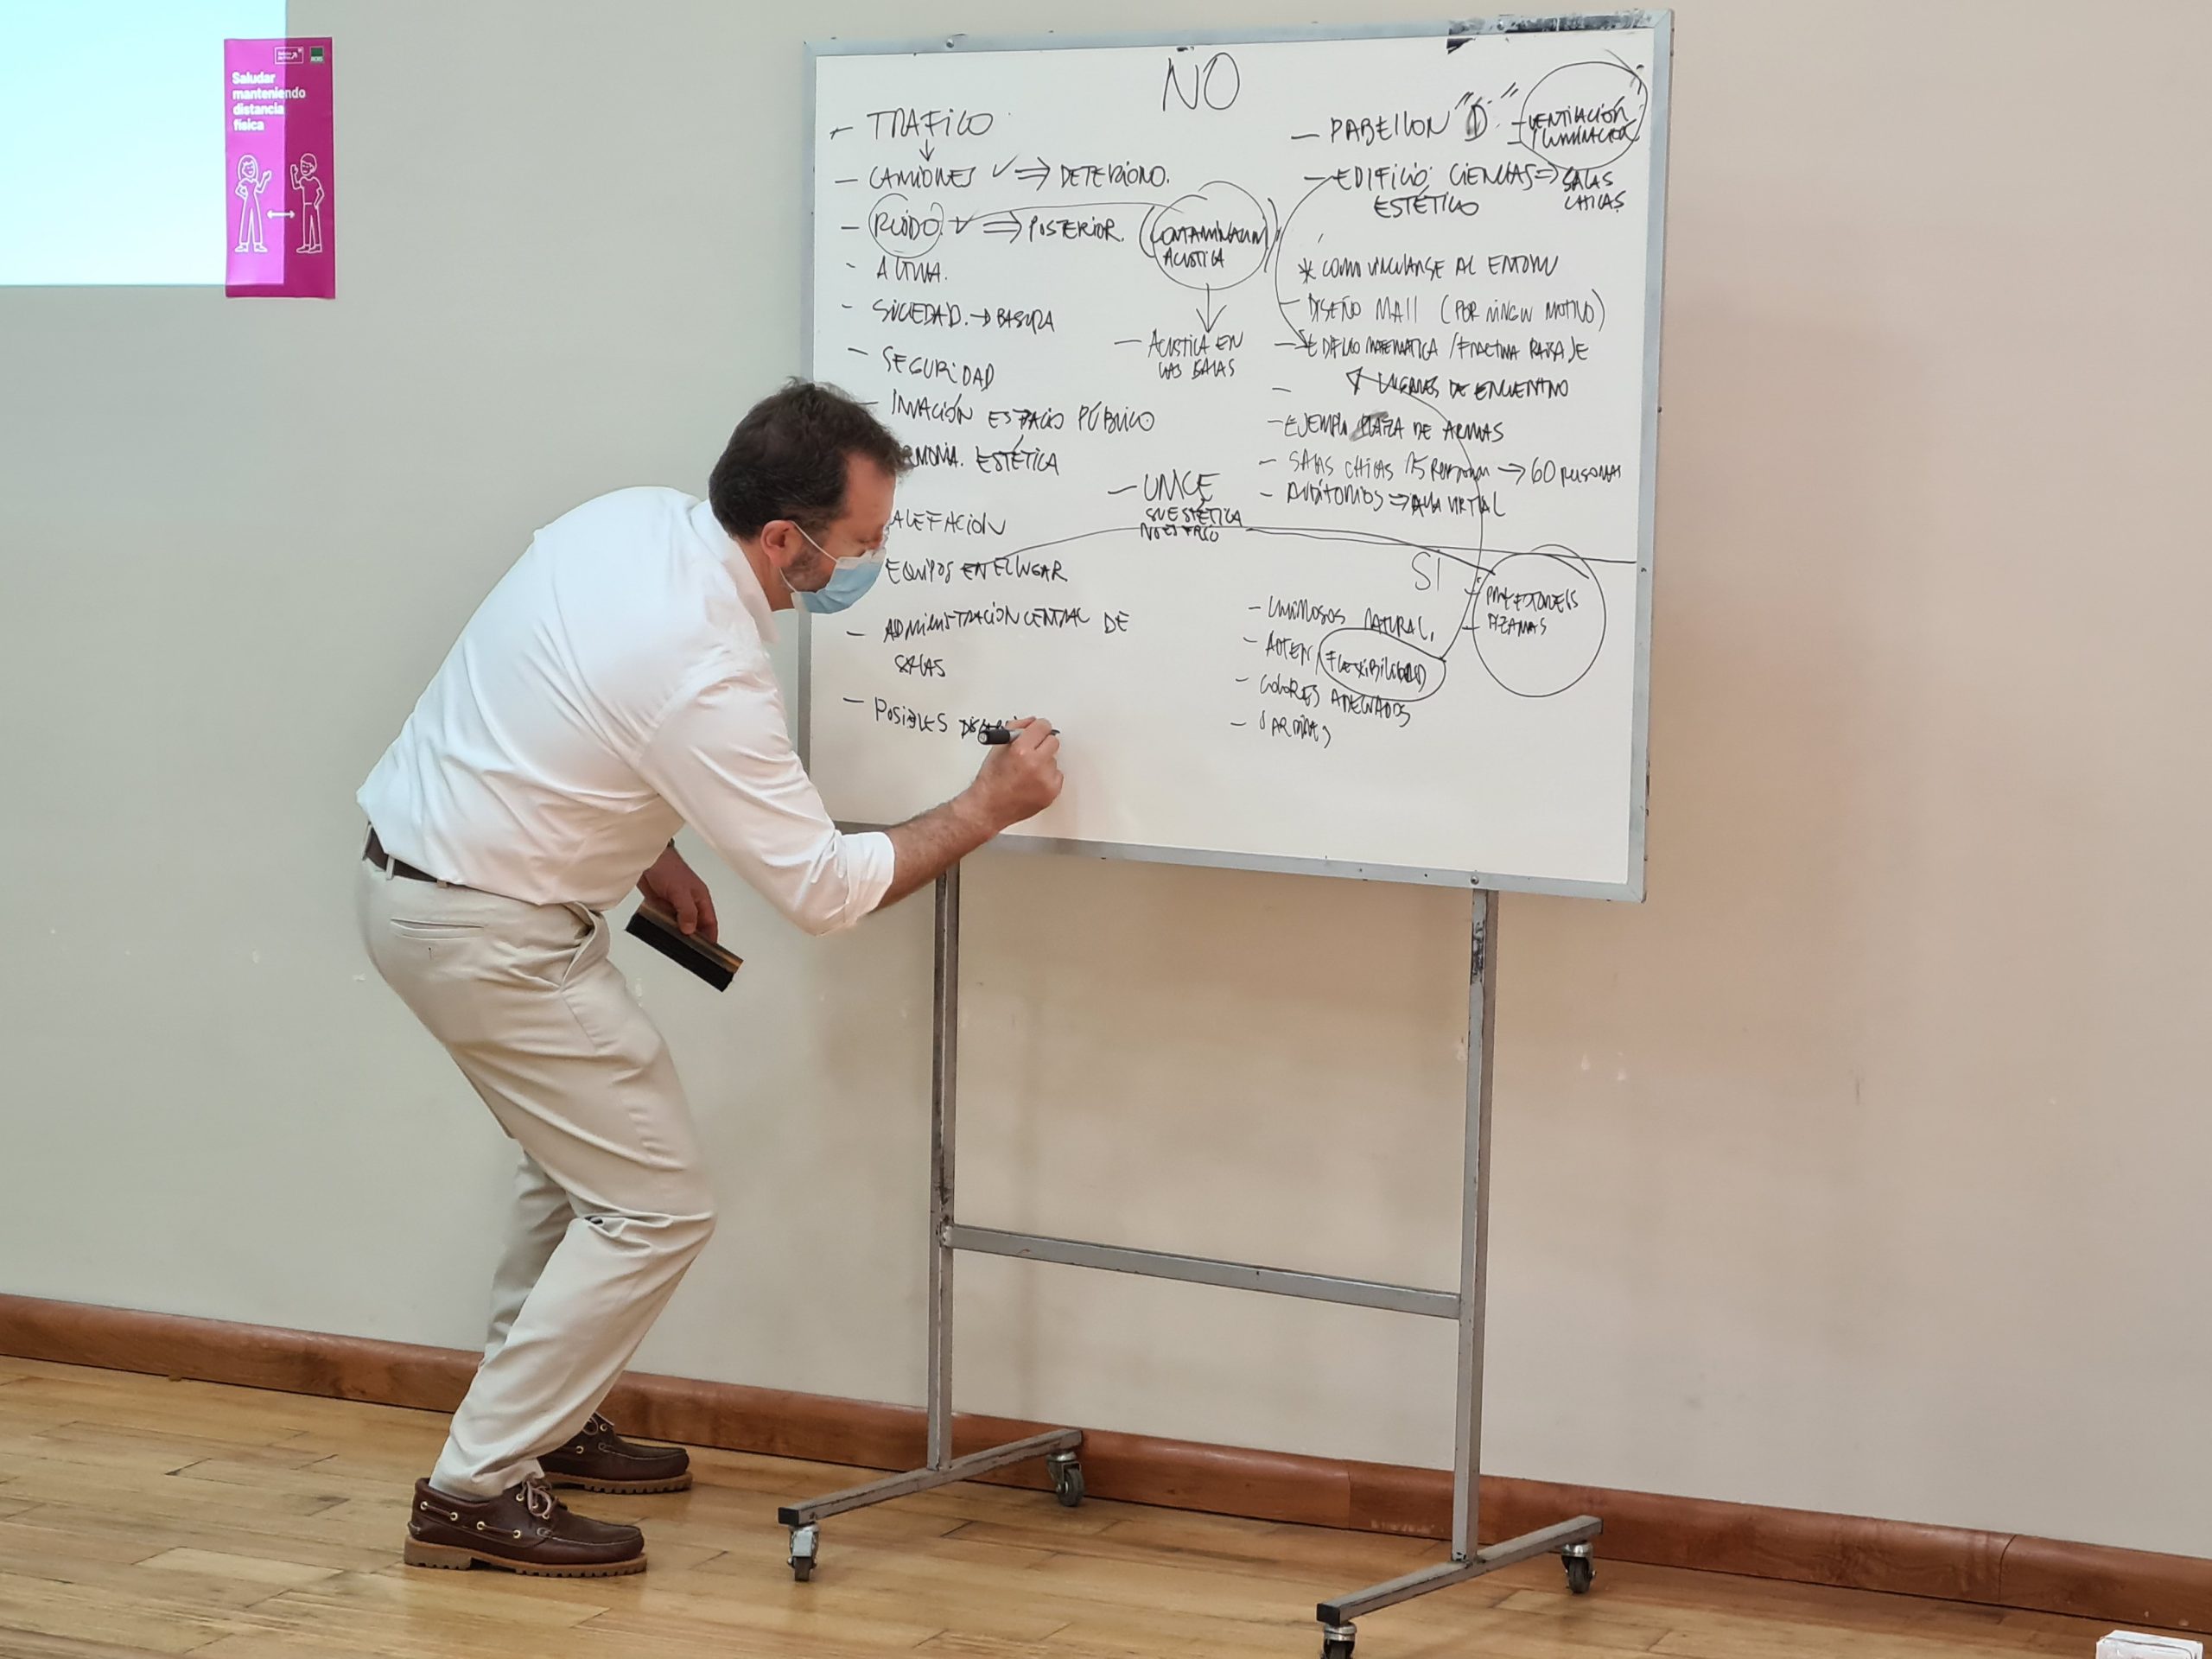 Saludar
manteniendo
distancia
física
NO
– TRAFICO
– CAMIONES ✓ ⇒ DETERIORO.
– RUIDO ✓ ⇒ POSTERIOR. (CONTAMINACION
ACUSTICA)
– ALTURA.
– SUCIEDAD. → BASURA
– SEGURIDAD
– INVACIÓN ESPACIO PÚBLICO
ESTÉTICA
EQUIPOS EN EL LUGAR
– ADMINISTRACION CENTRAL DE
SALAS
– POSIBLES
– ACUSTICA EN
LAS SALAS
– UMCE
SU ESTÉTICA
NO ES FRIO
– PABELLON "D" – VENTILACIÓN
– ILUMINACION
– EDIFICIO CIENCIAS ⇒ SALAS
CHICAS
ESTÉTICO
* COMO VINCULARSE AL ENTORNO
– DISEÑO MALL (POR NINGUN MOTIVO)
– EDIFICIO MATEMATICA / FRACTURA PAISAJE
– LUGARES DE ENCUENTRO
– EJEMPLO PLAZA DE ARMAS
– SALAS CHICAS 15 PERSONAS → 60 PERSONAS
– AUDITORIOS ⇒ AULA VIRTUAL
SI
– PROYECTORES
– PIZARRAS
– LUMINOSOS NATURAL.
FLEXIBILIDAD
– COLORES ADECUADOS